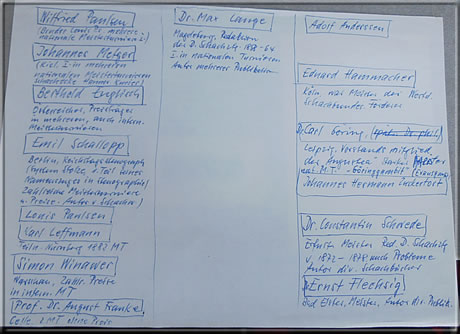 Wilfried Paulsen
(Bruder Louis', mehrere
nationale Meisterturniere I.)
Johannes Metger
(Kiel. I. in mehreren
nationalen Meisterturnieren
Berthold Englisch
Österreicher, Preisträger
in mehreren, auch intern.
Meisterturnieren
Emil Schallopp
Berlin, Reichstagsstenograph
(System Stolze, d. Teil seines
Namenszuges in Stenographie)
Zahlreiche Meisterturniere
u. Preise - Autor v. Schachw.)
Louis Paulsen
Carl Leffmann
Teiln. Nürnberg 1882 MT
Simon Winawer
Warschau, zahlr. Preise
in intern. MT
Prof. Dr. August Franke,
Celle, 2 MT ohne Preis
Dr. Max Lange
Magdeburg, Redaktion
der D. Schachztg. 1858-64
I. in nationalen Turnieren
Autor mehrerer Publikation.
Adolf Anderssen
Eduard Hammacher
Köln, war Meister des Westd.
Schachbundes, Förderer
Carl Göring, (spät. Dr. phil.)
Leipzig, Vorstandsmitglied
der "Augustea"
aus M.T. - "Göringgambit"
Johannes Hermann Zuckertort
Dr. Constantin Schwede
Ernst Meister Red. D. Schachztg
v. 1872 - 1878 auch Probleme
Autor div. Schachbücher
Ernst Flechsig
Meister, Autor div. Publik.